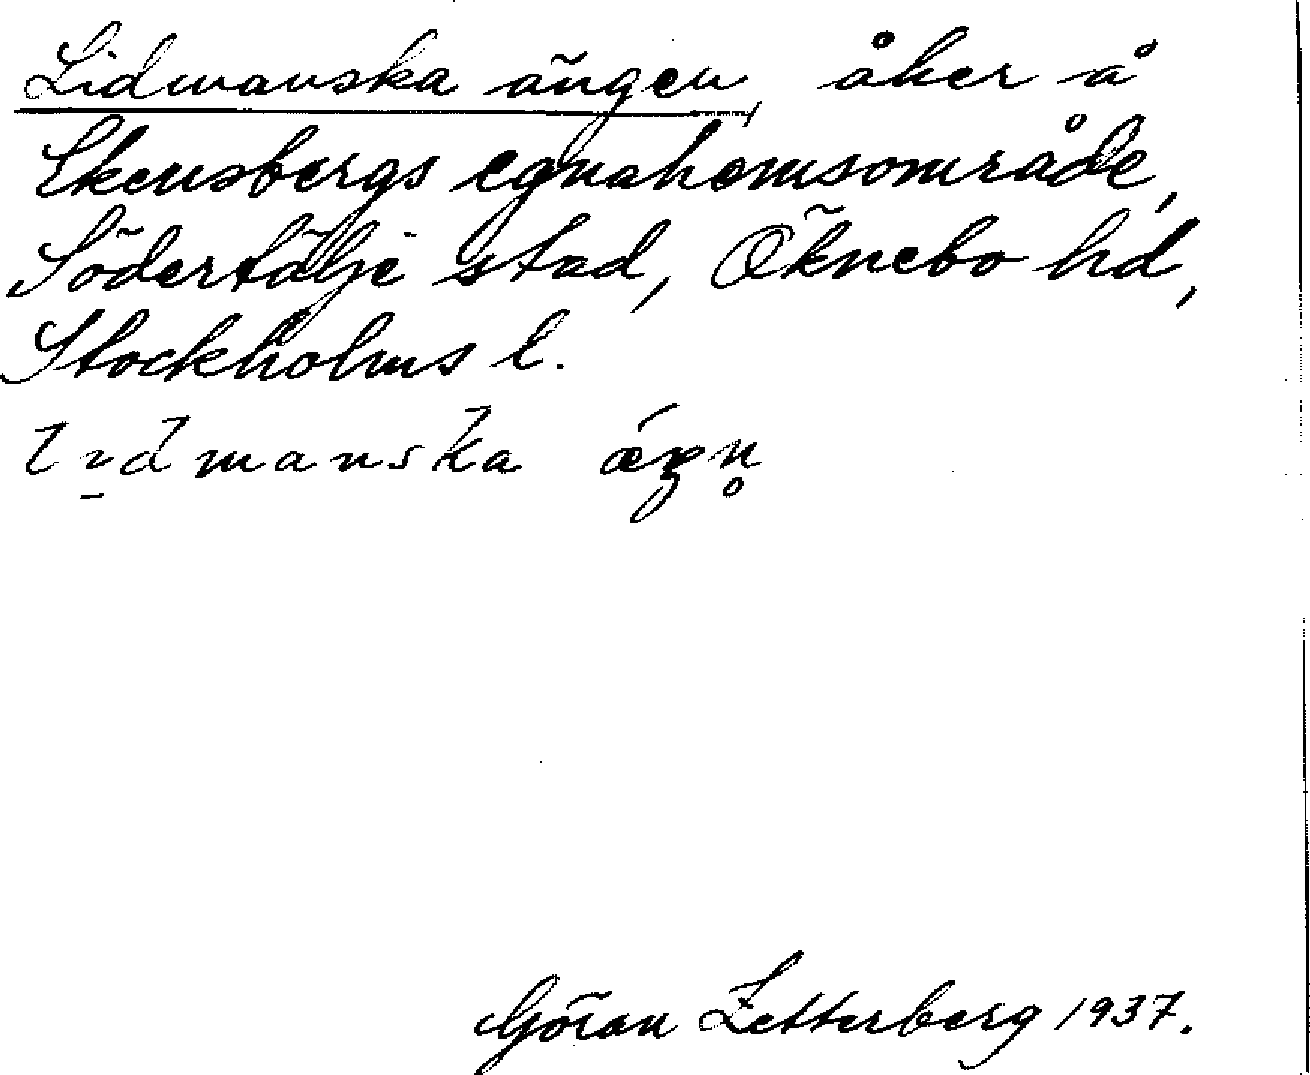 Lidmanska ängen, åker å
Ekensbergs egnahemsområde,
Södertälje stad, Öknebo hd,
Stockholms l.
lıdmanska ǽŋn̥
Göran Zetterberg 1937.